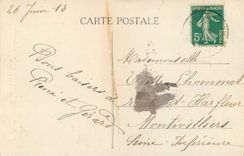 26 Juin 13
CARTE POSTALE
5c
Bons baisers de
René et Gérard
Mademoiselle
Lhommet
Harfleur
Montivilliers
Seine Inférieure